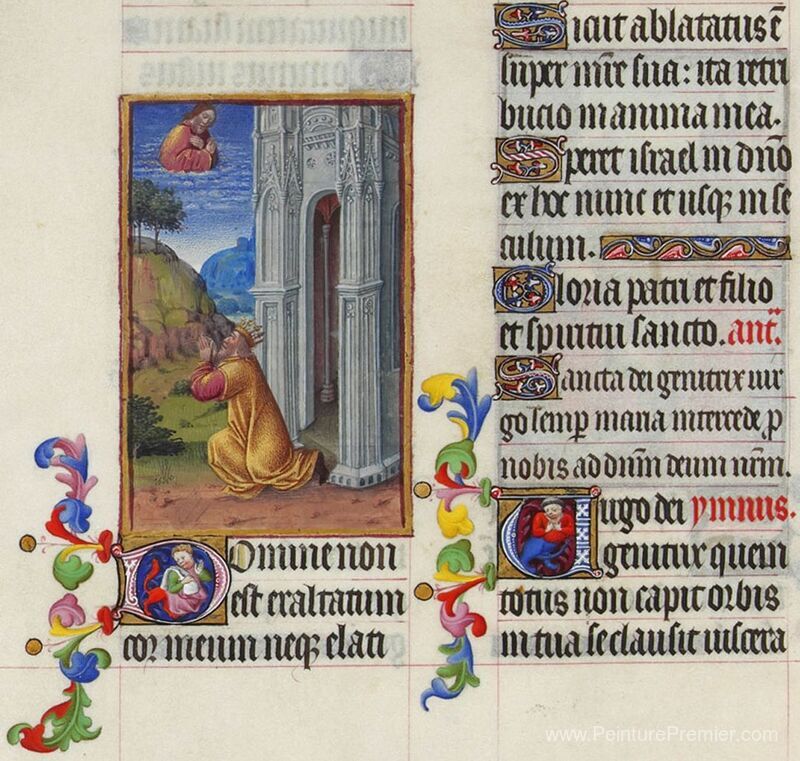 Domine non
est exaltatum
cor meum neq; elati
Sicut ablatatus ē
super mr̄e sua: ita retri
bucio in anima mea.
Speret israel in dn̄o
ex hoc nunc et usq; in se
culum.
Gloria patri et filio
et spiritui sancto. ant̄.
Sancta dei genitrix vir
go semp̱ maria intercede p̱
nobis ad dn̄m deum nr̄m.
Uirgo dei ymnus.
genitrix quem
totus non capit orbis
in tua se clausit viscera
www.PeinturePremier.com